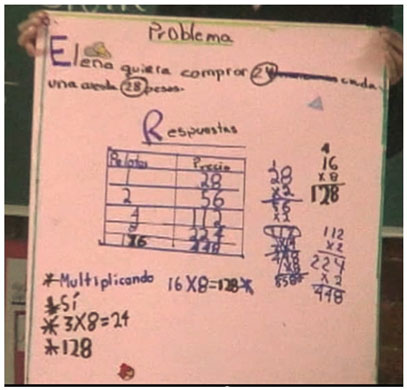 Problema
Elena quiere comprar 24 cada
una cuesta 28 pesos.
Respuestas
Pelotas Precio
1 28
2 56
4 112
8 224
16 448
28
x2
56
x2
112
16
x8
128
112
x2
224
x2
448
*Multiplicando 16x8=128*
*Sí
*3x8=24
*128